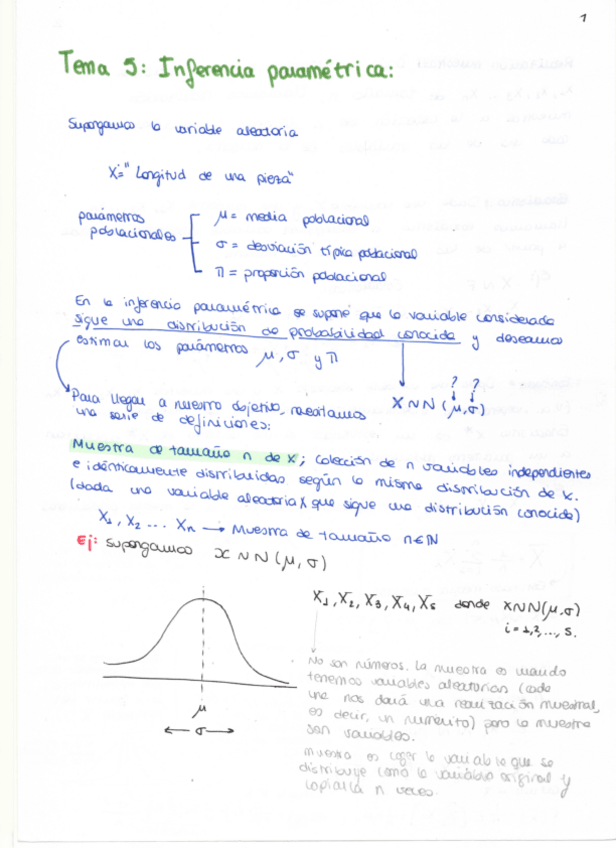 1
Tema 5: Inferencia paramétrica:
Supongamos la variable aleatoria
X:="Longitud de una pieza"
parámetros poblacionales
μ = media poblacional
σ = desviación típica poblacional
π = proporción poblacional
En la inferencia paramétrica se supone que la variable considerada
sigue una distribución de probabilidad conocida y deseamos
estimar los parámetros μ, σ y π
? ?
X ~ N (μ, σ)
Para llegar a nuestro objetivo, necesitamos
una serie de definiciones:
Muestra de tamaño n de X; colección de n variables independientes
e idénticamente distribuidas según la misma distribución de X.
(dada una variable aleatoria X que sigue una distribución conocida)
X₁, X₂ ... Xn → Muestra de tamaño n∈ℕ
Ej: supongamos x ~ N (μ, σ)
X₁, X₂, X₃, X₄, X₅ donde X ~ N(μ, σ)
i = 1,2, ..., 5.
μ
← σ →
No son números. La muestra es cuando
tenemos variables aleatorias (cada
una nos dará una realización muestral,
es decir, un numerito) pero la muestra
son variables.
muestra es coger la variable que se
distribuye como la variable original y
copiarla n veces.